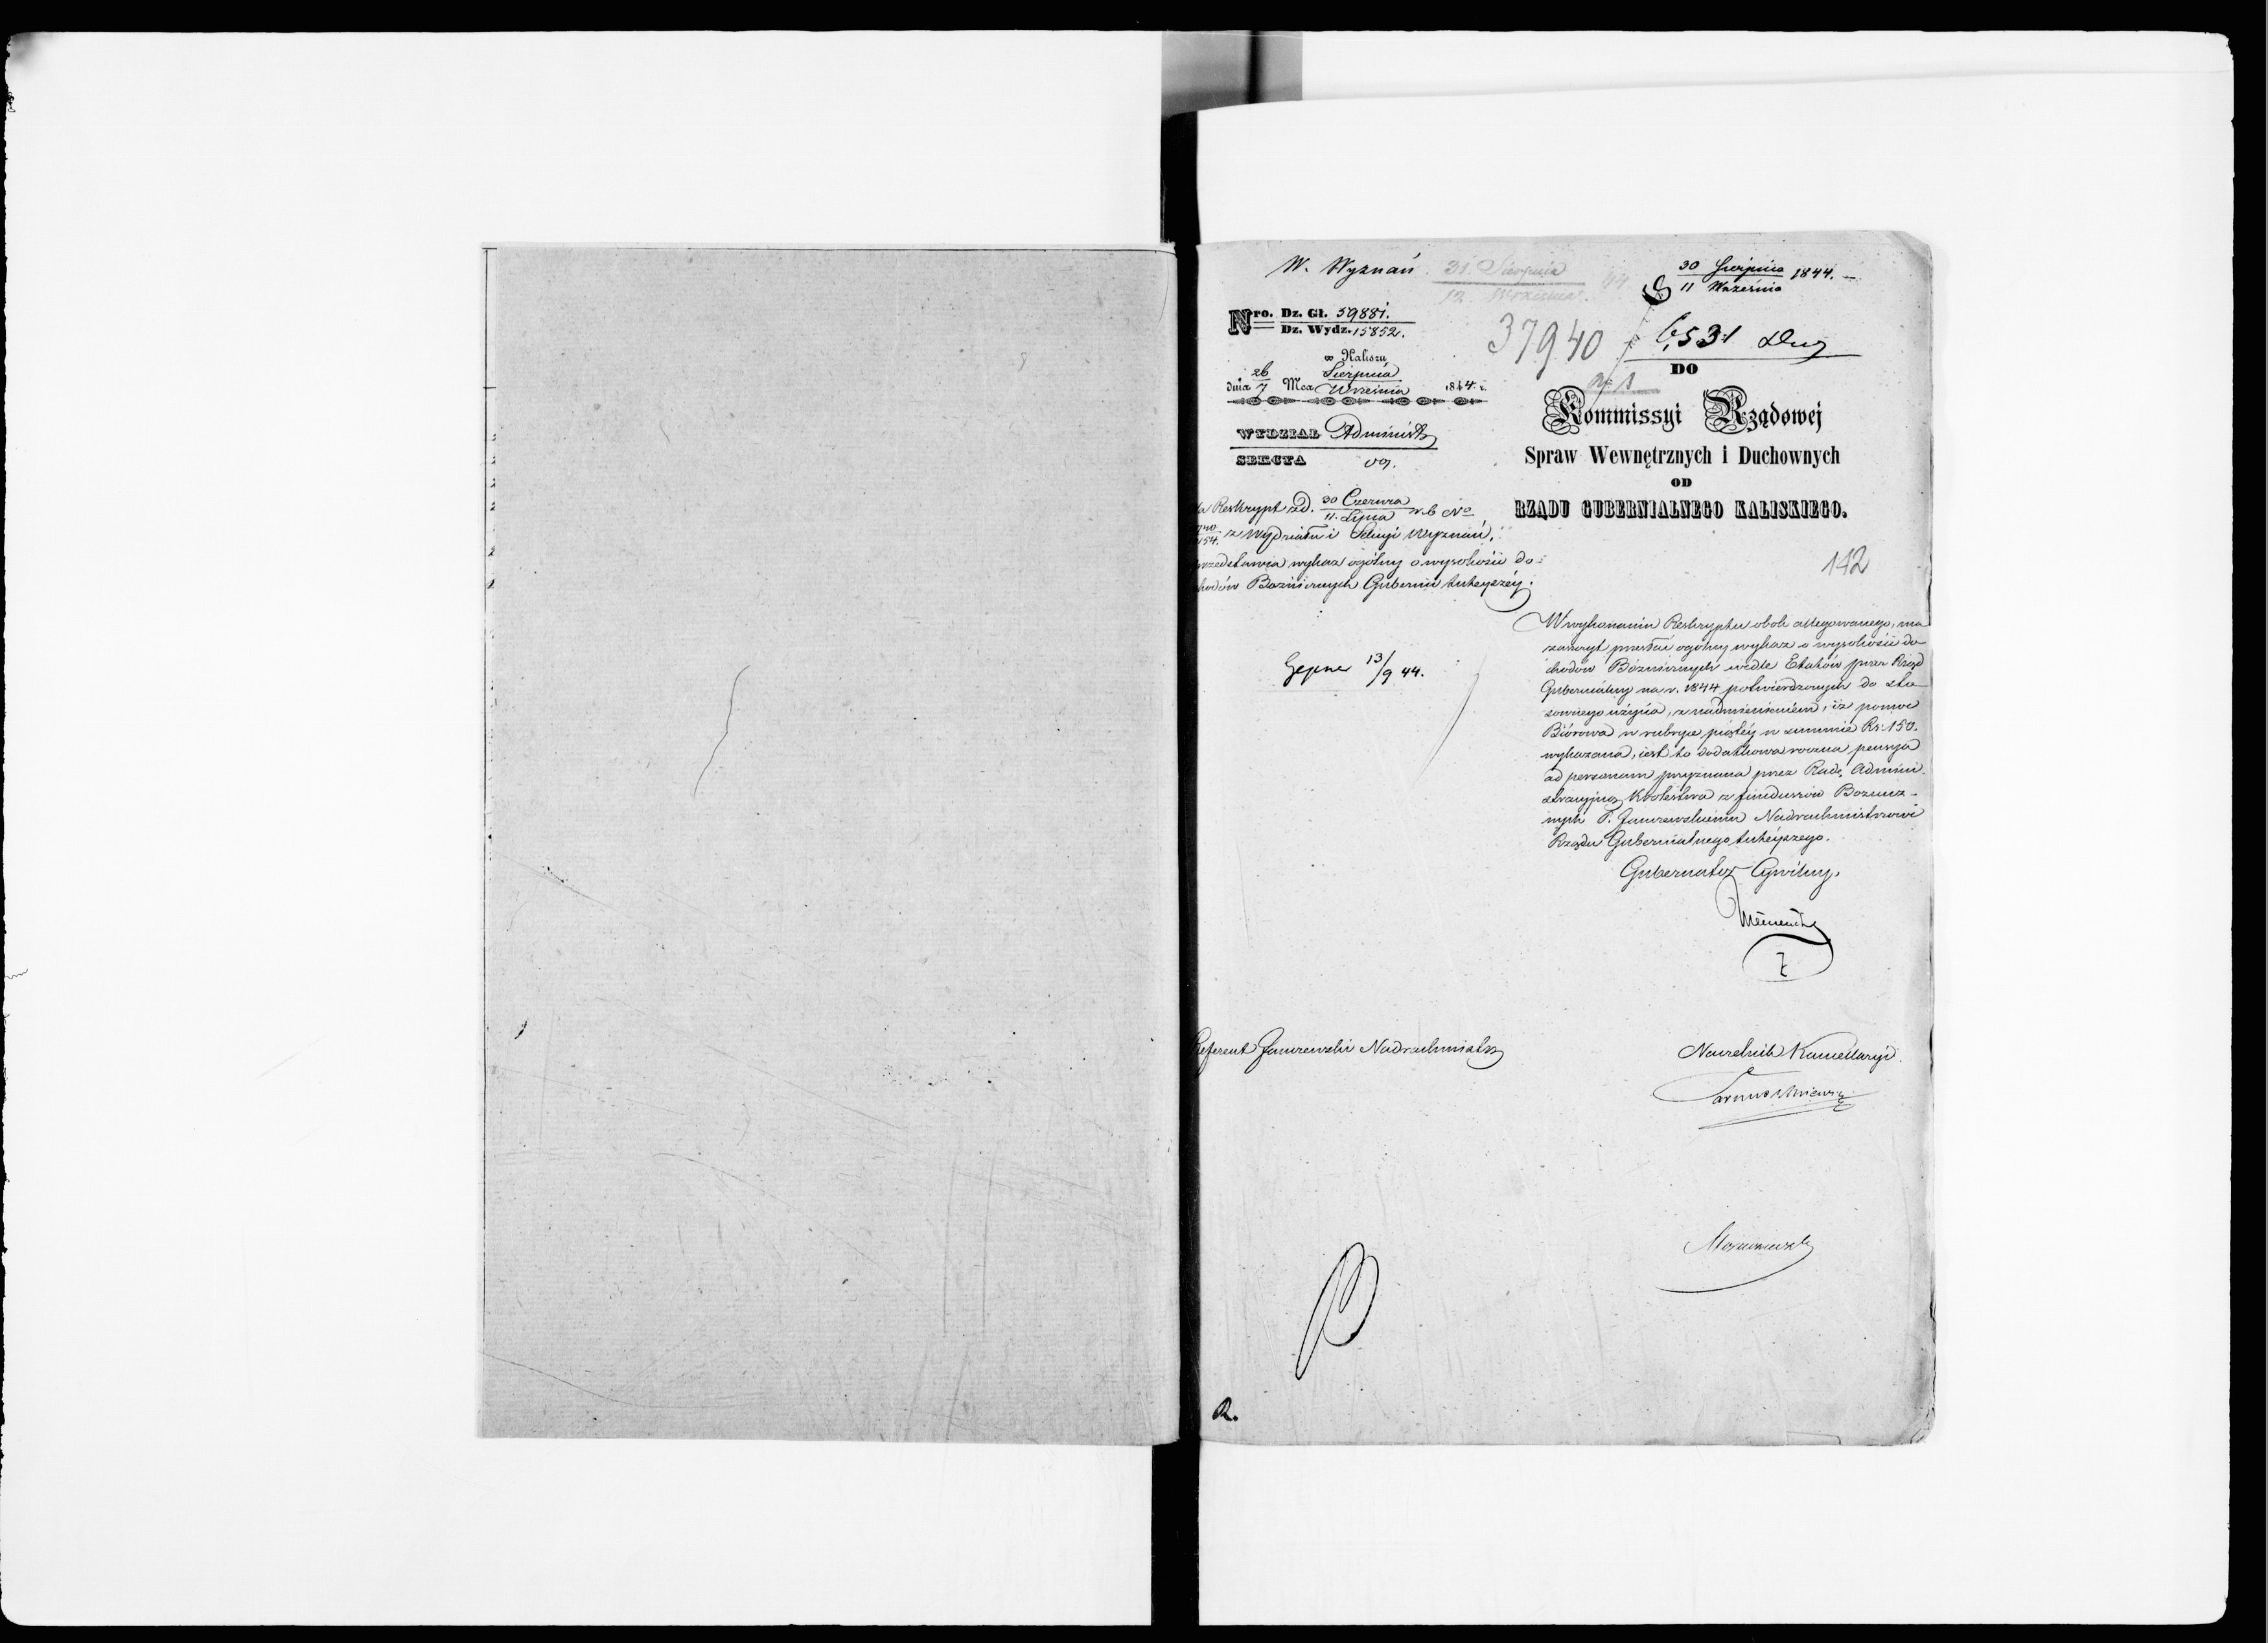 W. Wyznań 31. Sierpnia 44
12 Września
30 Sierpnia 1844.
11 Września
Nro. Dz. Gł. 59881.
Dz. Wydz. 15852.
37940
6531
w Kaliszu
dnia 26 Mca Sierpnia 1844 r.
7 Września
WYDZIAŁ Administr
SEKCYA
DO
Kommissyi Rządowej
Spraw Wewnętrznych i Duchownych
OD
RZĄDU GUBERNIALNEGO KALISKIEGO.
Na Reskrypt z d. 30 Czerwca r. b. No
11. Lipca
154. z Wydziału i Sekcyi Wyznań,
przedstawia wykaz ogólny o wysokości do-
chodów Bóżniczych Gubernii tuteyszéy.
142
W wykonaniu Reskryptu obok allegowanego, ma
zaszczyt przesłać ogólny wykaz o wysokości do-
chodów Bóżniczych wedle Etatów przez Rząd
Gubernialny na r. 1844 potwierdzonych do sto-
sownego użycia, z nadmienieniem, iż pomoc
Biórowa w rubryce piątéy w summie Rs. 150.
wykazana, iest to dodatkowa roczna pensya
ad personam przyznana przez Radę Admini-
stracyjną Królestwa z funduszów Bożnicz-
nych P. Janczewskiemu Nadrachmistrzowi
Rządu Gubernialnego tuteyszego.
13/9 44.
Gubernator Cywilny,
Referent Janczewski Nadrachmistrz
Naczelnik Kancellaryi
R.